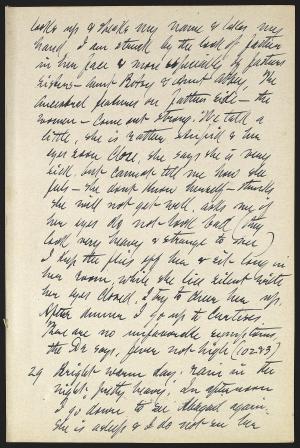 looks up & speaks my name & takes my
hand. I am struck by the look of father
in her face & more especially of fathers
sisters — aunt Betsy & aunt Abby. The
ancestral features on fathers side — the
women — come out strong. We talk a
little, she is rather stupid & her
eyes soon close. She says she is very
sick but cannot tell me how she
feels — she dont know herself — thinks
she will not get well. asks one if
her eyes do not look bad (they
look very heavy & strange to me)
I keep the flies off her & sit long in
her room, while she lies silent with
her eyes closed. I try to cheer her up.
After dinner I go up to Curtises.
There are no unfavorable symptoms,
the Dr says, fever not high (102.83)
29 Bright warm day; rain in the
night, pretty heavy. In afternoon
I go down to see Abigail again.
She is asleep & I do not see her